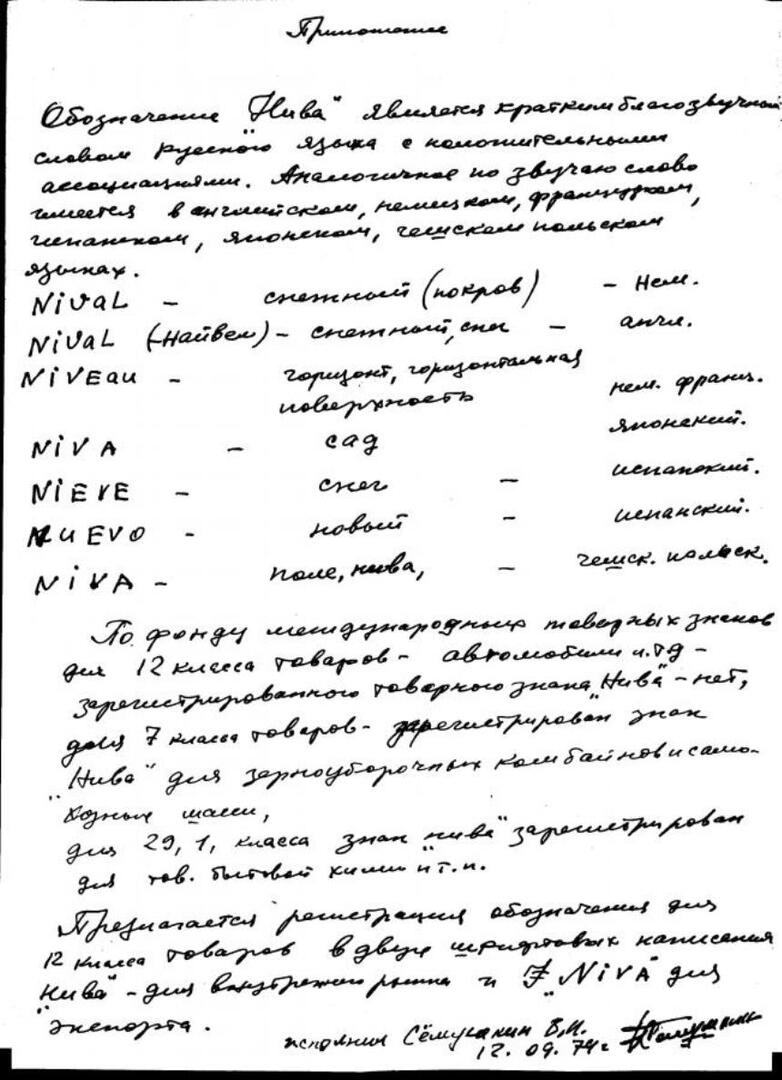 Приложение
Обозначение "Нива" является кратким благозвучным
словом русского языка с положительными
ассоциациями. Аналогичное по звучаю слово
имеется в английском, немецком, французком,
испанском, японском, чешском польском
языках.
NiVaL - снежный (покров) - нем.
NiVaL (-найвел) - снежный, снег - англ.
NiVEau - горизонт, горизонтальная
поверхность нем. франц.
NiVA - сад японский.
NiEVE - снег - испанский.
NUEVO - новый - испанский.
NiVA - поле, нива, - чешск. польск.
По фонду международных товарных знаков
для 12 класса товаров - автомобили и.тд -
зарегистрированного товарного знака "Нива" - нет,
для 7 класса товаров - зарегистрирован знак
"Нива" для зерноуборочных комбайнов и само-
ходных шасси,
для 29, 1, класса знак "нива" зарегистрирован
для тов. бытовой химии и т.п.
Предлагается регистрация обозначения для
12 класса товаров в двух шрифтовых написания
"Нива" - для внутреннего рынка и "NiVA" для
экспорта.
исполнил Сёмушкин В.И.
12.09.74г